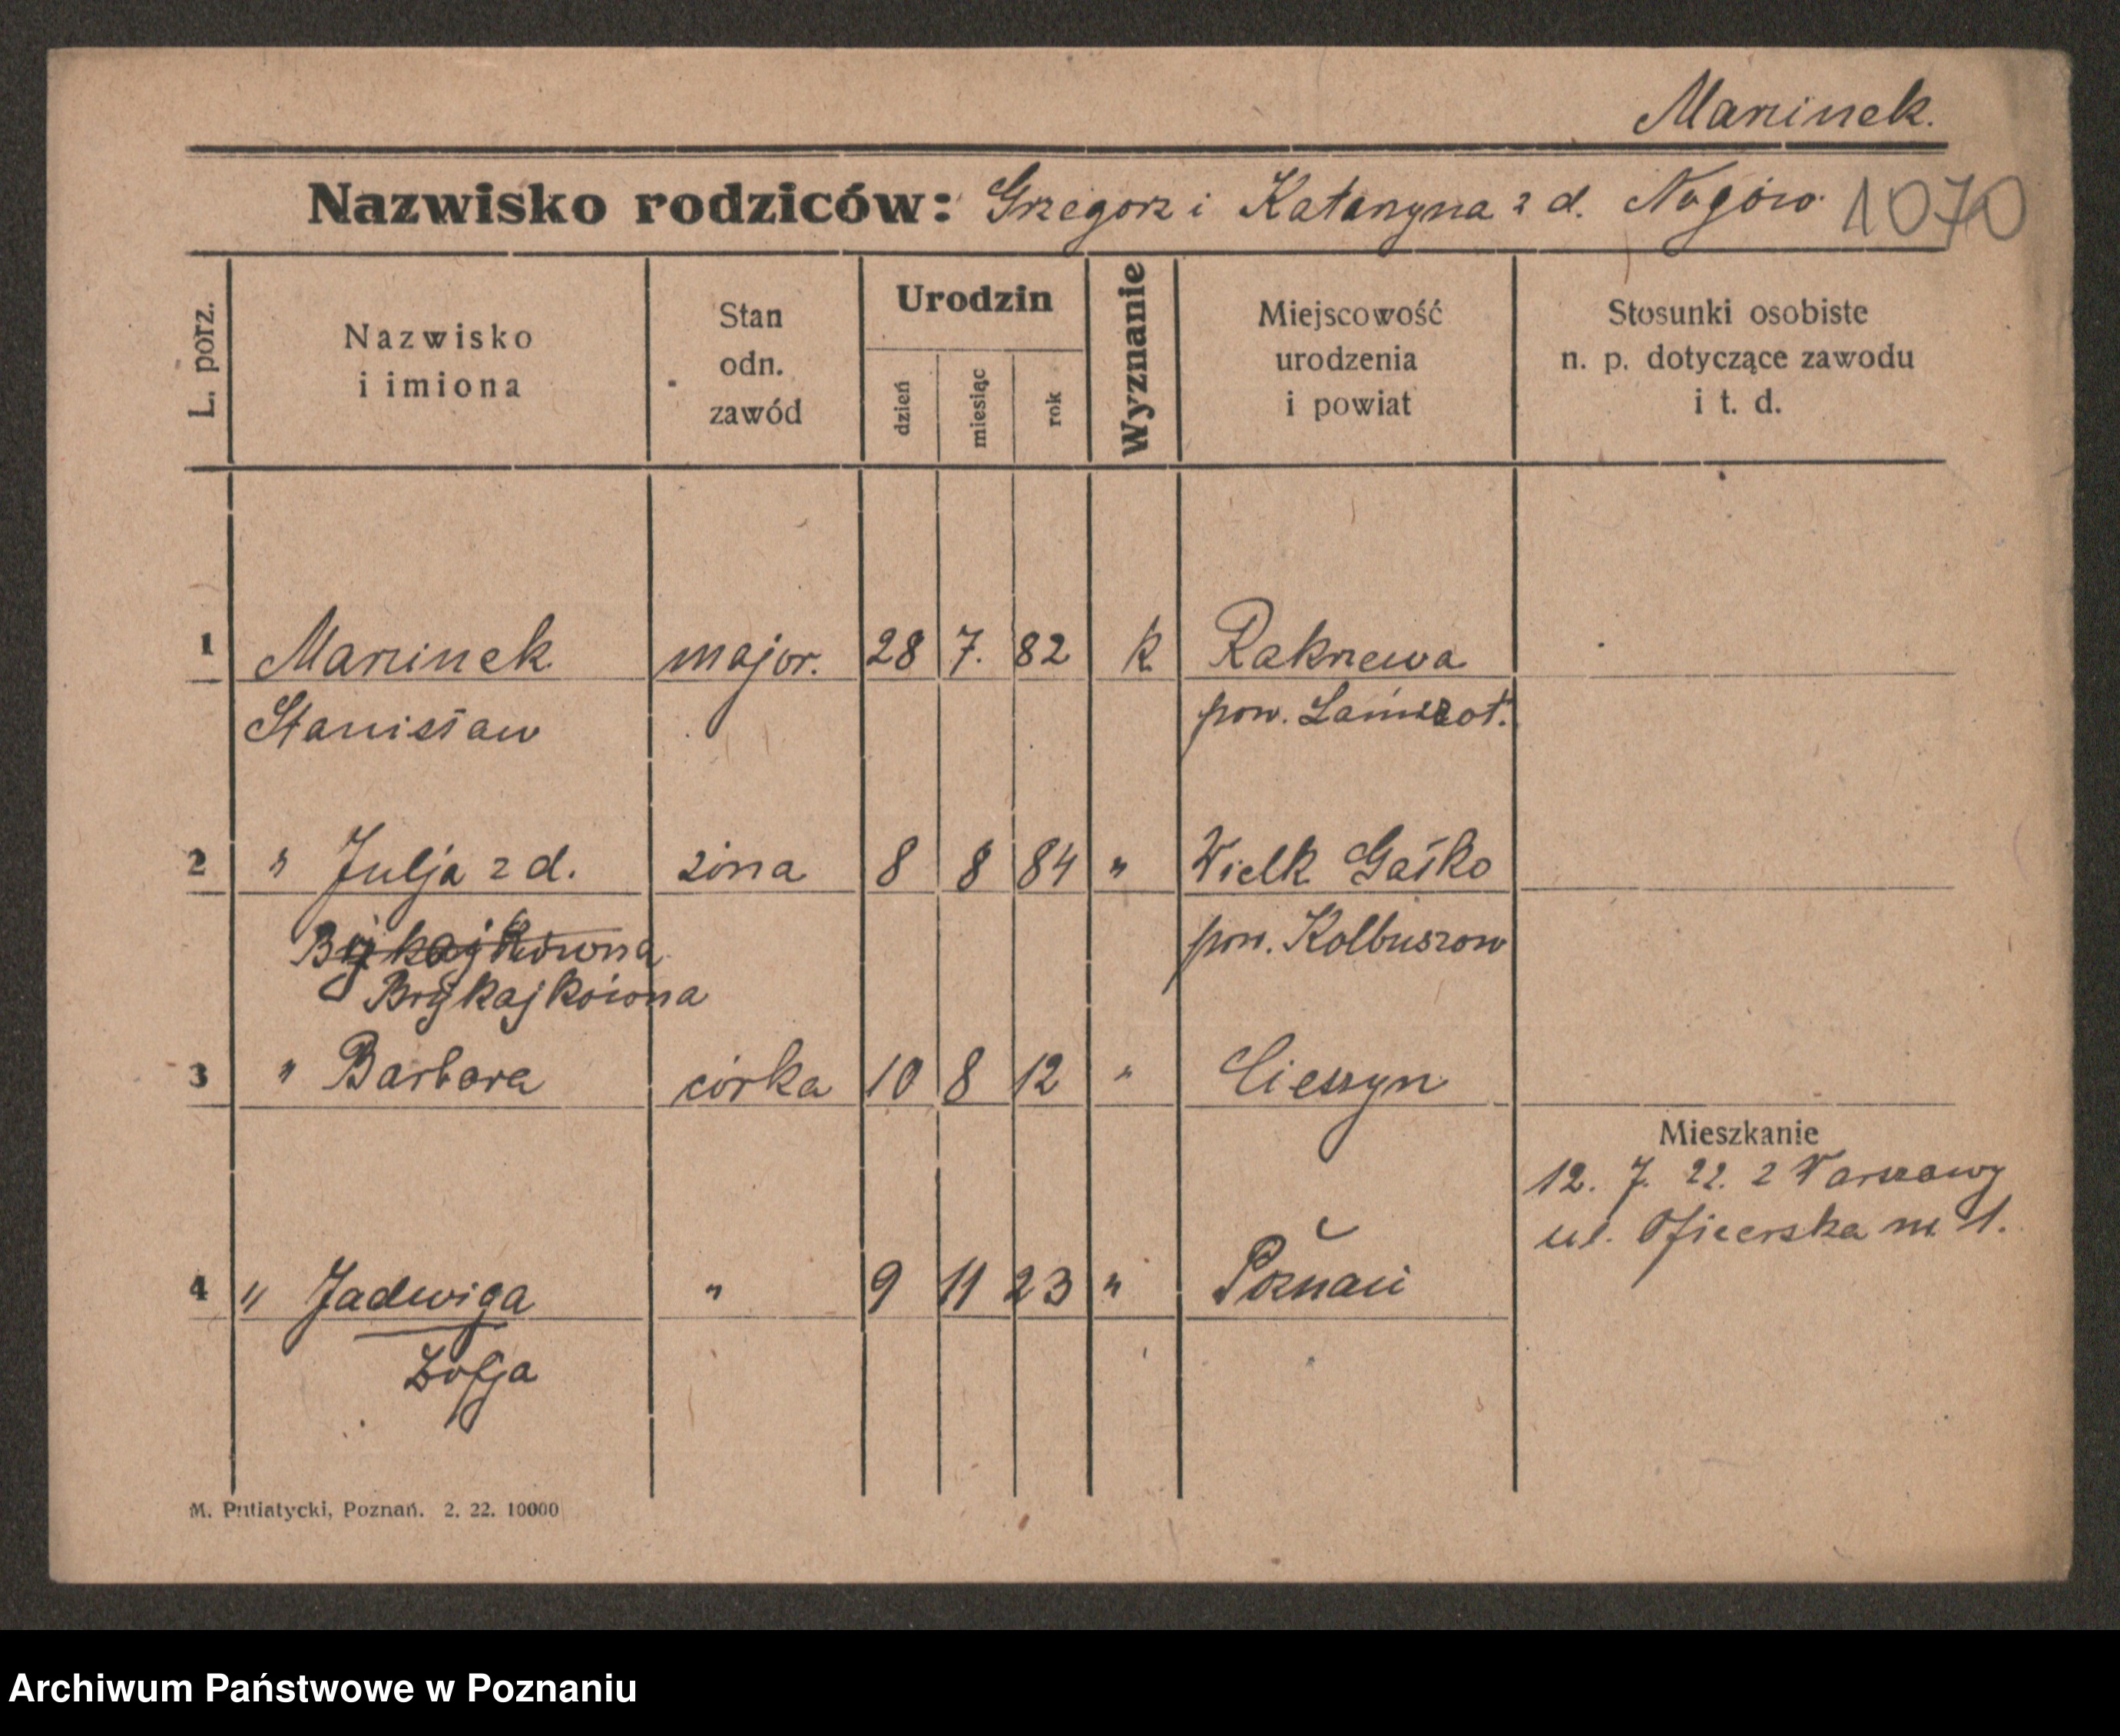 Marcinek.
Nazwisko rodziców: Grzegorz i Katarzyna z d. Nogów 1070
L. porz.
Nazwisko
i imiona
Stan
odn.
zawód
Urodzin
dzień
miesiąc
rok
Wyznanie
Miejscowość
urodzenia
i powiat
Stosunki osobiste
n. p. dotyczące zawodu
i t. d.
1 Marcinek major. 28 7. 82 k Rakszewa
Stanisław pow. Łańczot.
2 " Julja z d. żona 8 8 84 " Wielk Gaśko
pow. Kolbuszow
Brykajkówna
3 " Barbara córka 10 8 12 " Cieszyn
Mieszkanie
12. 7. 22. z Warszawy
ul. Oficerska nr 1.
4 " Jadwiga " 9 11 23 " Poznań
Zofja
M. Putiatycki, Poznań. 2. 22. 10000
Archiwum Państwowe w Poznaniu